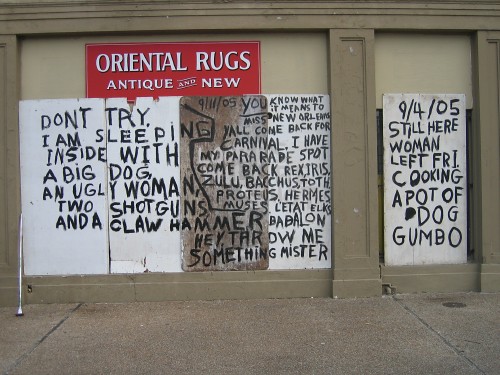 ORIENTAL RUGS
ANTIQUE AND NEW
DONT TRY.
I AM SLEEPING
INSIDE WITH
A BIG DOG,
AN UGLY WOMAN,
TWO SHOTGUNS
AND A CLAW HAMMER
9/11/05 YOU KNOW WHAT
IT MEANS TO
MISS NEW ORLEANS
Y'ALL COME BACK FOR
CARNIVAL. I HAVE
MY PARARADE SPOT
COME BACK REX, IRIS,
ZULU, BACCHUS, TOTH,
PROTEUS, HERMES
MUSES L'ETAT ELKS
BABALON
HEY, THROW ME
SOMETHING MISTER
9/4/05
STILL HERE
WOMAN
LEFT FRI.
COOKING
A POT OF
DOG
GUMBO